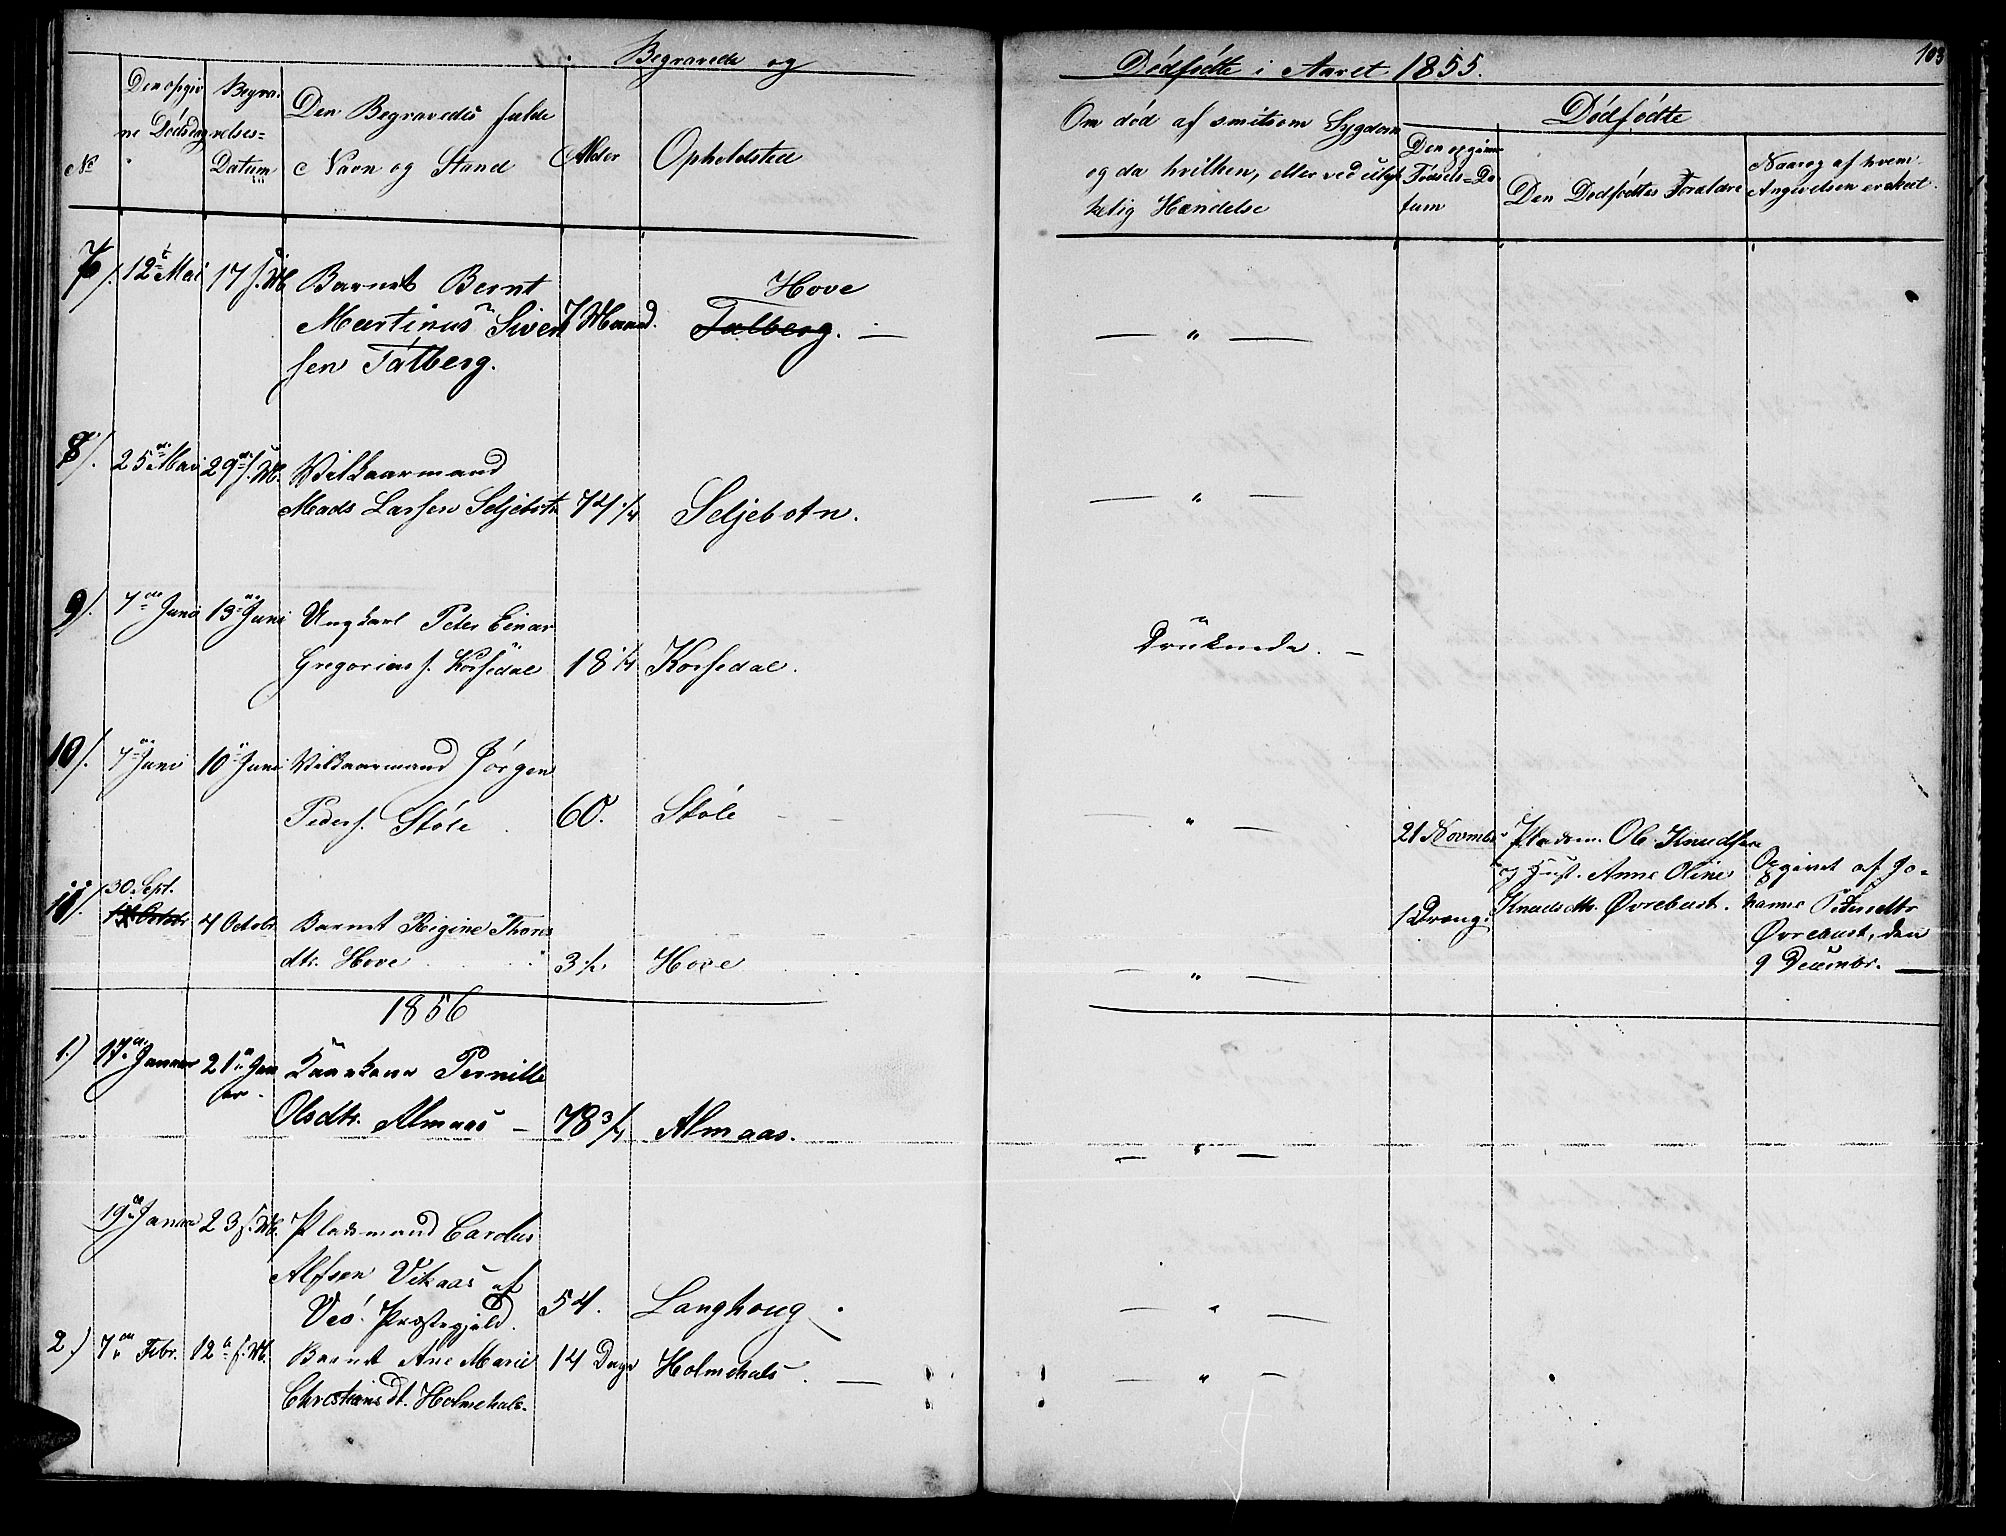 103
Begravede og
Dödfödte i Aaret 1855.
No
Den opgiv
ne Dödsdag
Begra-
velses=
Datum
Den Begravedes fulde
Navn og Stand
Alder
Opholdsted
Om död af smitsom Sygdom
og da hvilken, eller ved ulyk
kelig Hændelse
Dödfödte
Den opgivne
Födsels=Da
tum
Den Dödfödtes Forældre
Naar og af hvem
Angivelsen er skeet.
7/. 12te Mai 17 s. M. Barnet Bernt
Martinus Siver
sen Talberg.
7 Maand.
Hove
Talberg. —
— " —
8/. 25de Mai 29de s. M. Vilkaarmand
Mads Larsen Seljebotn 74 1/4 Seljebotn.
— " —
9/. 7de Juni 13de Juni Ungkarl Peter Einar
Gregorius s. Korsedal 18 1/4 Korsedal.
Druknede. —
10/. 7de Juni 10de Juni Vilkaarmand Jörgen
Peders. Stöle 60. Stöle
— " —
21 Novmbr
1 Dreng.
Pladsm. Ole Knudsen
og Hust. Anne Oline
Knudsdtr. Øvrebust.
Opgivet af Jo-
hanne Pedersdtr
Øvrebust, den
9 Decembr. —
11/. 30 Sept.
Octobr. 4 Octobr. Barnet Regine Thores
dtr. Hove 3 1/2 Hove
— " —
1856
1.) 17de Januar 21de Janu
ar. Kaarkone Pernille
Olsdtr. Almaas — 78 3/4 Almaas.
— " —
19de Januar 23 s. M. Pladsmand Carolus
Alfsen Vikaas af
Veö Præstegjeld. 54. Langhoug.
— " —
2.) 7de Febr. 12te s. M. Barnet Ane Marie
Christians dt. Holmehals.
14 Dage Holmehals. —
— " —